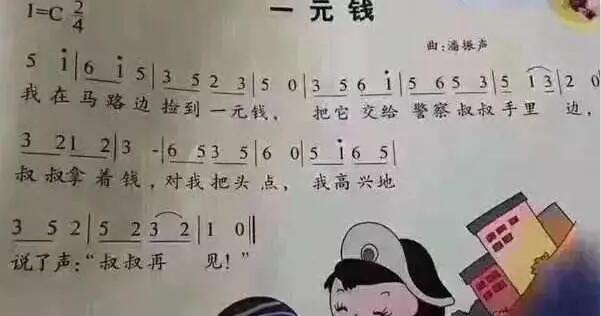 一元钱
1=C 2/4
曲:潘振声
5 i|6 i 5|3 5 2 3|5 0|3 5 6 i|5 6 5 3|5 1 3|2 0
我在马路边捡到一元钱，把它交给警察叔叔手里边，
3 2 1 2|3 -|6 5 3 5|6 0|5 i 6 5|
叔叔拿着钱，对我把头点，我高兴地
3 5 2|5 2 3 2|1 0‖
说了声:“叔叔再见！”